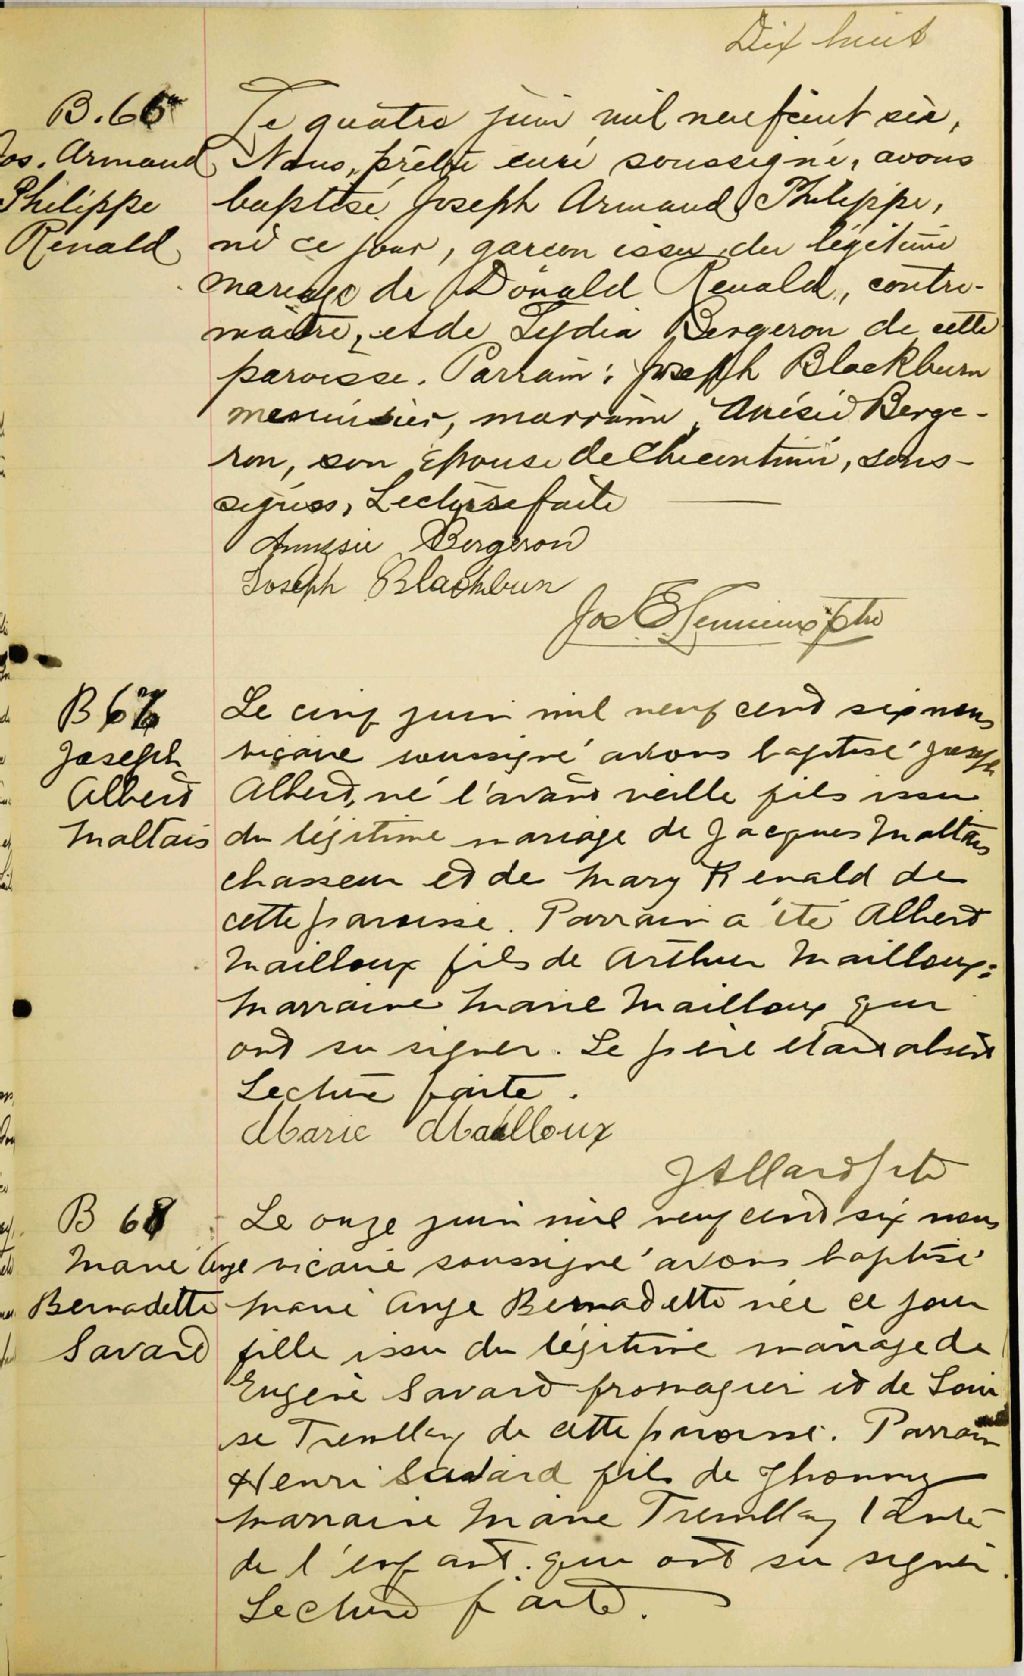 Dix huit
B. 66
Jos. Armand
Philippe
Renald
Le quatre juin mil neuf cent six,
Nous, prêtre curé soussigné, avons
baptisé Joseph Armand Philippe,
né ce jour, garçon issu du légitime
mariage de Donald Renald, contre-
maitre, et de Lydia Bergeron de cette
paroisse. Parrain: Joseph Blackburn
menuisier, marraine, Anésie Berge-
ron, son épouse de Chicoutimi, sous-
signés, Lecture faite
Annésie Bergeron
Joseph Blackburn
Jos E Lemieux ptre
B 67
Joseph
Albert
Maltais
Le cinq juin mil neuf cent six nous
vicaire soussigné avons baptisé Joseph
Albert, né l'avant veille fils issu
du légitime mariage de Jacques Maltais
chasseur et de Mary Renald de
cette paroisse. Parrain a été Albert
Mailloux fils de Arthur Mailloux;
Marraine Marie Mailloux qui
ont su signer. Le père étant absent
Lecture faite.
Marie Mailloux
J Allard ptre
B 68
Marie Ange
Bernadette
Savard
Le onze juin mil neuf cent six nous
vicaire soussigné avons baptisé
Marie Ange Bernadette née ce jour
fille issu du légitime mariage de
Eugène Savard fromagier et de Loui
se Tremblay de cette paroisse. Parrain
Henri Savard fils de Jhonny
Marraine Marie Tremblay tante
de l'enfant. qui ont su signer.
Lecture faite.